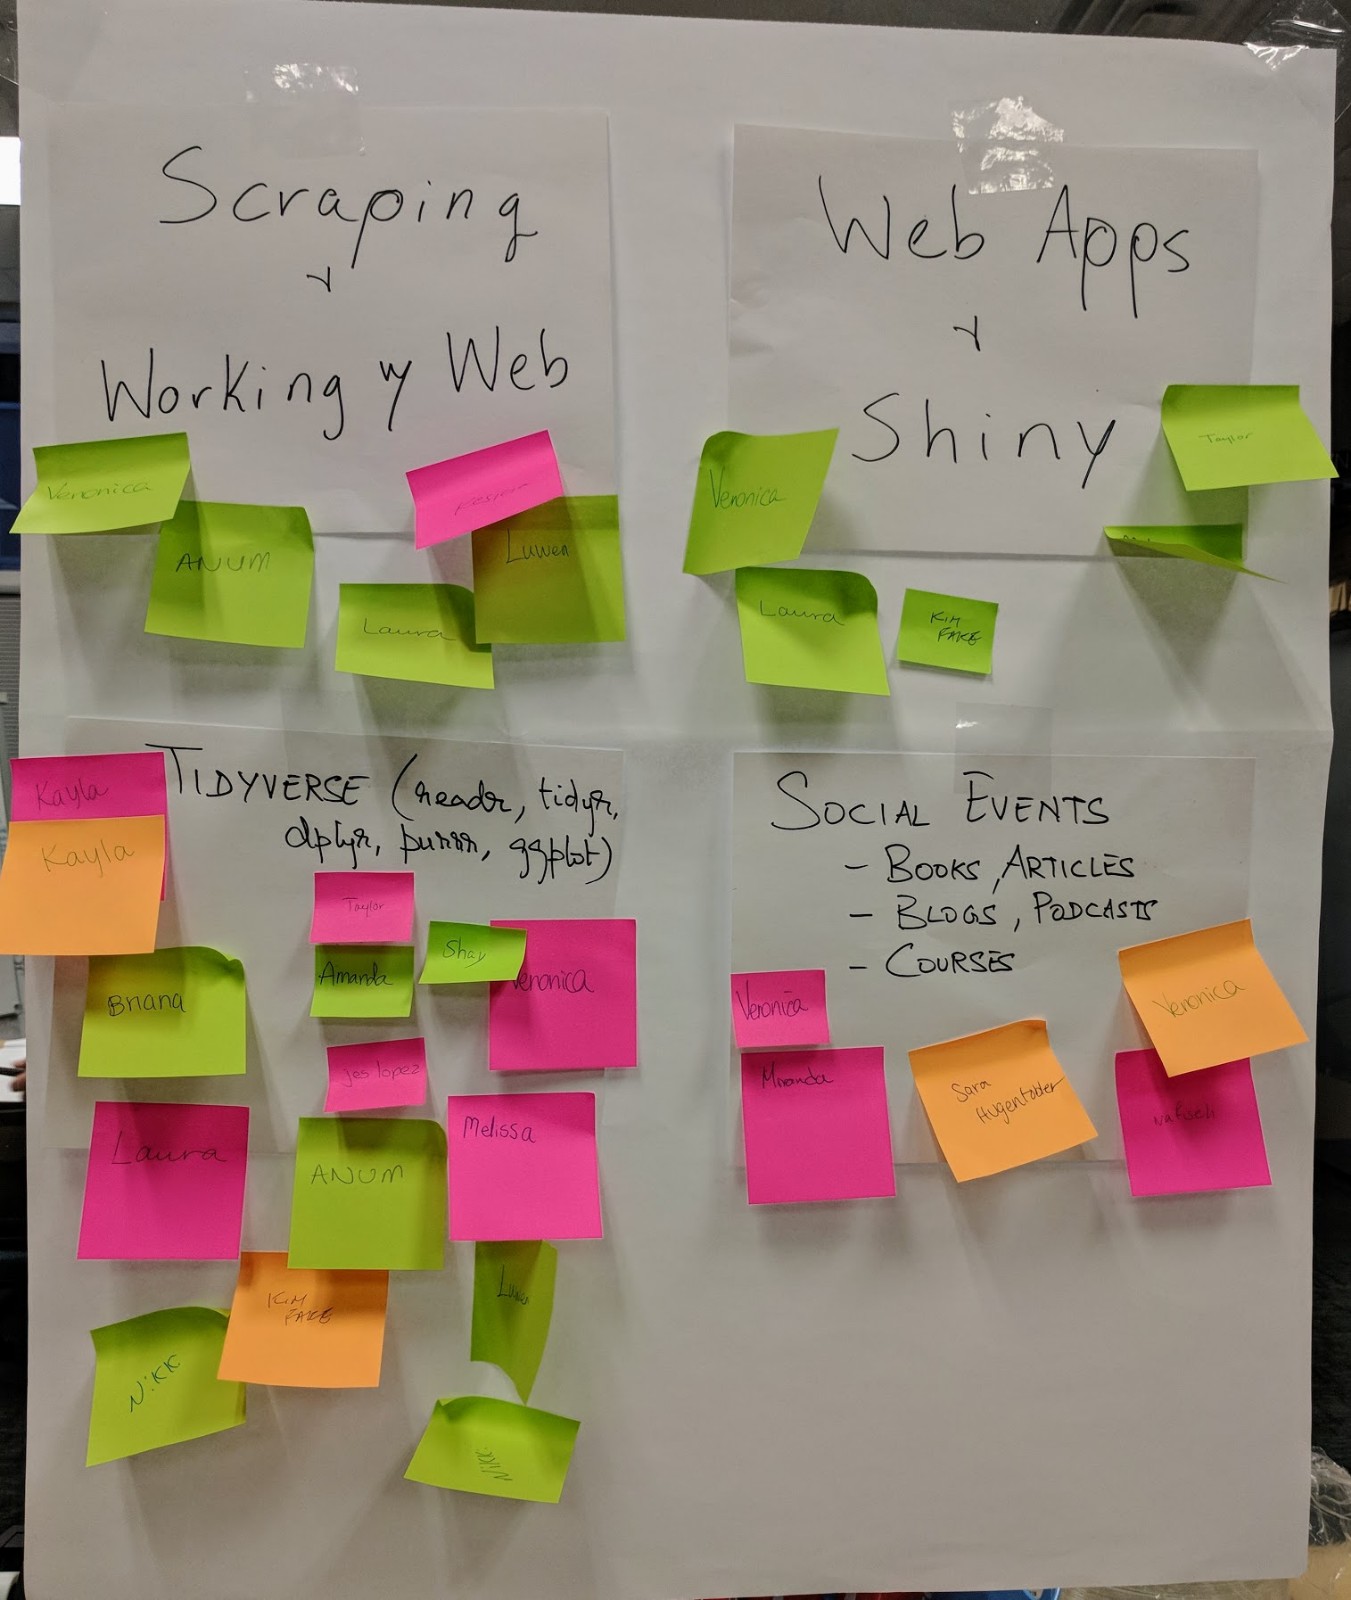 Scraping
+
Working w/ Web
Veronica
ANUM
Laura
Luwen
Web Apps
+
Shiny
Veronica
Taylor
Laura
KIM
FAKE
TIDYVERSE (readr, tidyr,
dplyr, purrr, ggplot)
Kayla
Kayla
Taylor
Shay
Veronica
Amanda
Briana
jes lopez
Laura
ANUM
Melissa
KIM
FAKE
Luwen
Nikk
Nikk
SOCIAL EVENTS
- BOOKS, ARTICLES
- BLOGS, PODCASTS
- COURSES
Veronica
Veronica
Miranda
Sara
Hugentobler
Nafiseh